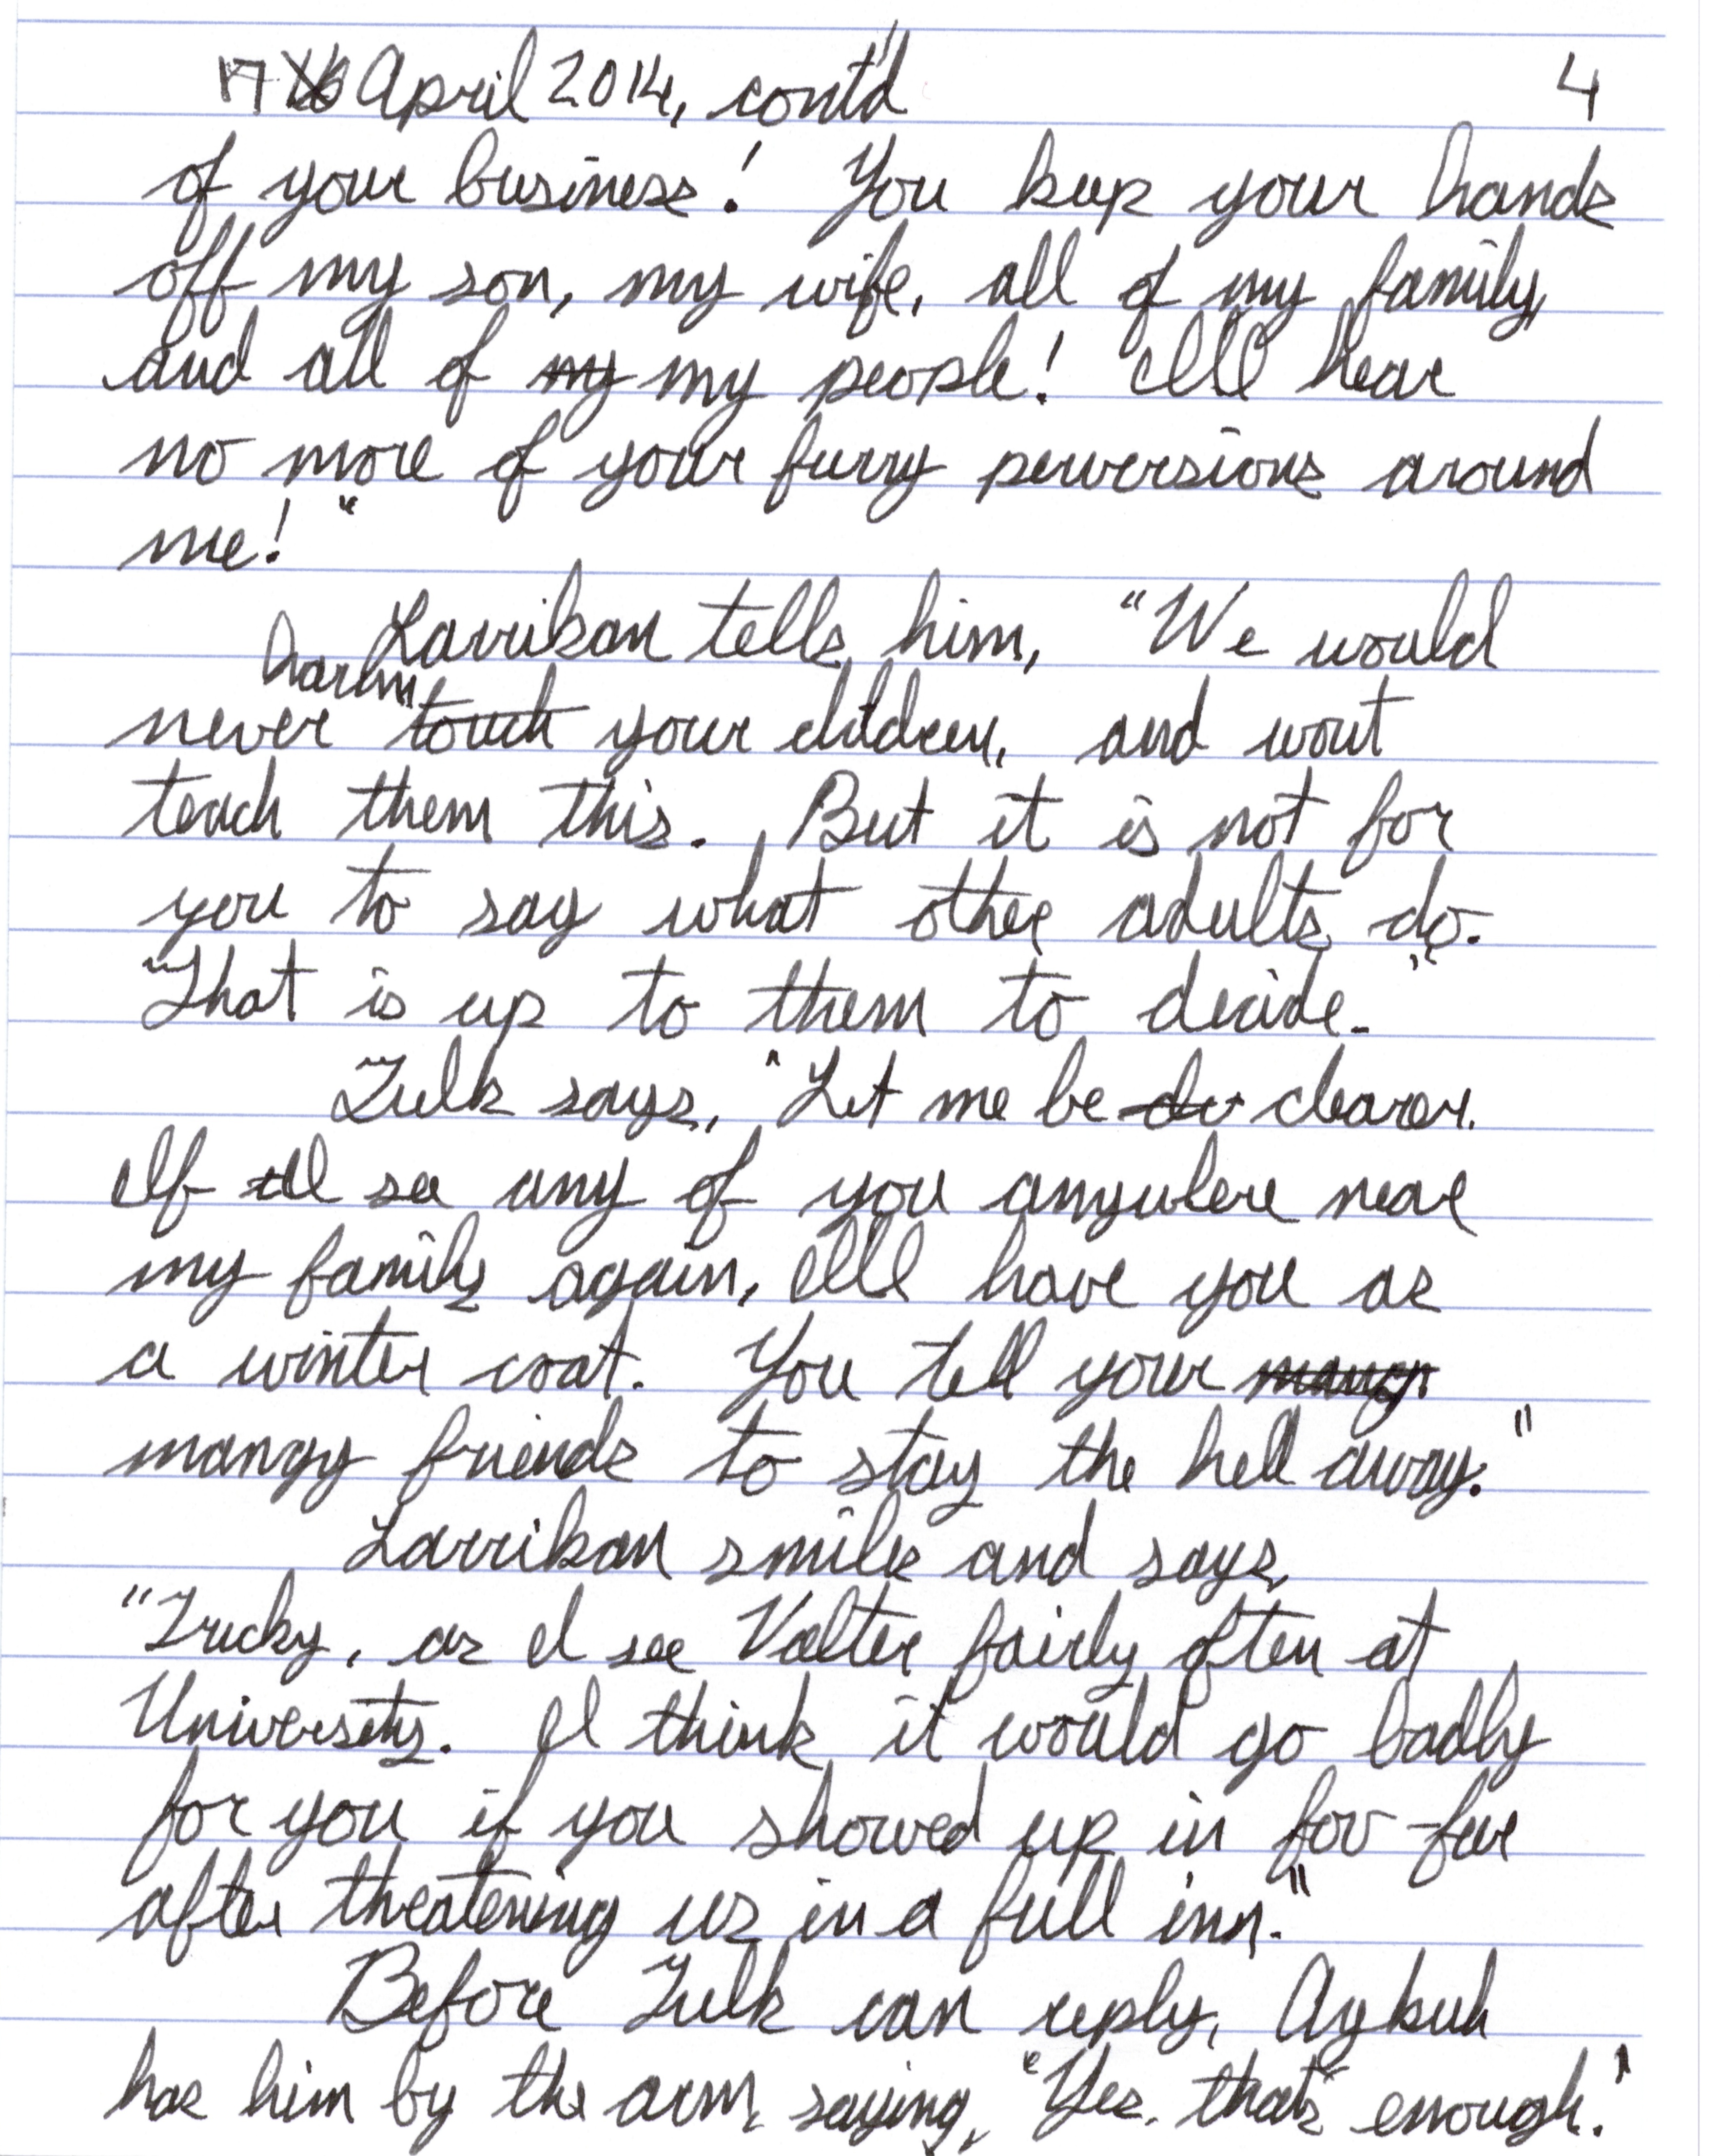 17 April 2014, cont'd 4
of your business! You keep your hands
off my son, my wife, all of my family,
and all of my my people! I'll hear
no more of your furry perversions around
me!"
Larrikan tells him, "We would
harm
never touch your children, and wont
teach them this. But it is not for
you to say what other adults do.
That is up to them to decide."
Tulk says, "Let me be clearer.
If I see any of you anywhere near
my family again, I'll have you as
a winter coat. You tell your
mangy friends to stay the hell away."
Larrikan smile and says,
"Tricky, as I see Valter fairly often at
University. I think it would go badly
for you if you showed up in fov-fur
after threatening us in a full inn."
Before Tulk can reply, Aykuh
has him by the arm, saying, "Yes, that's enough."